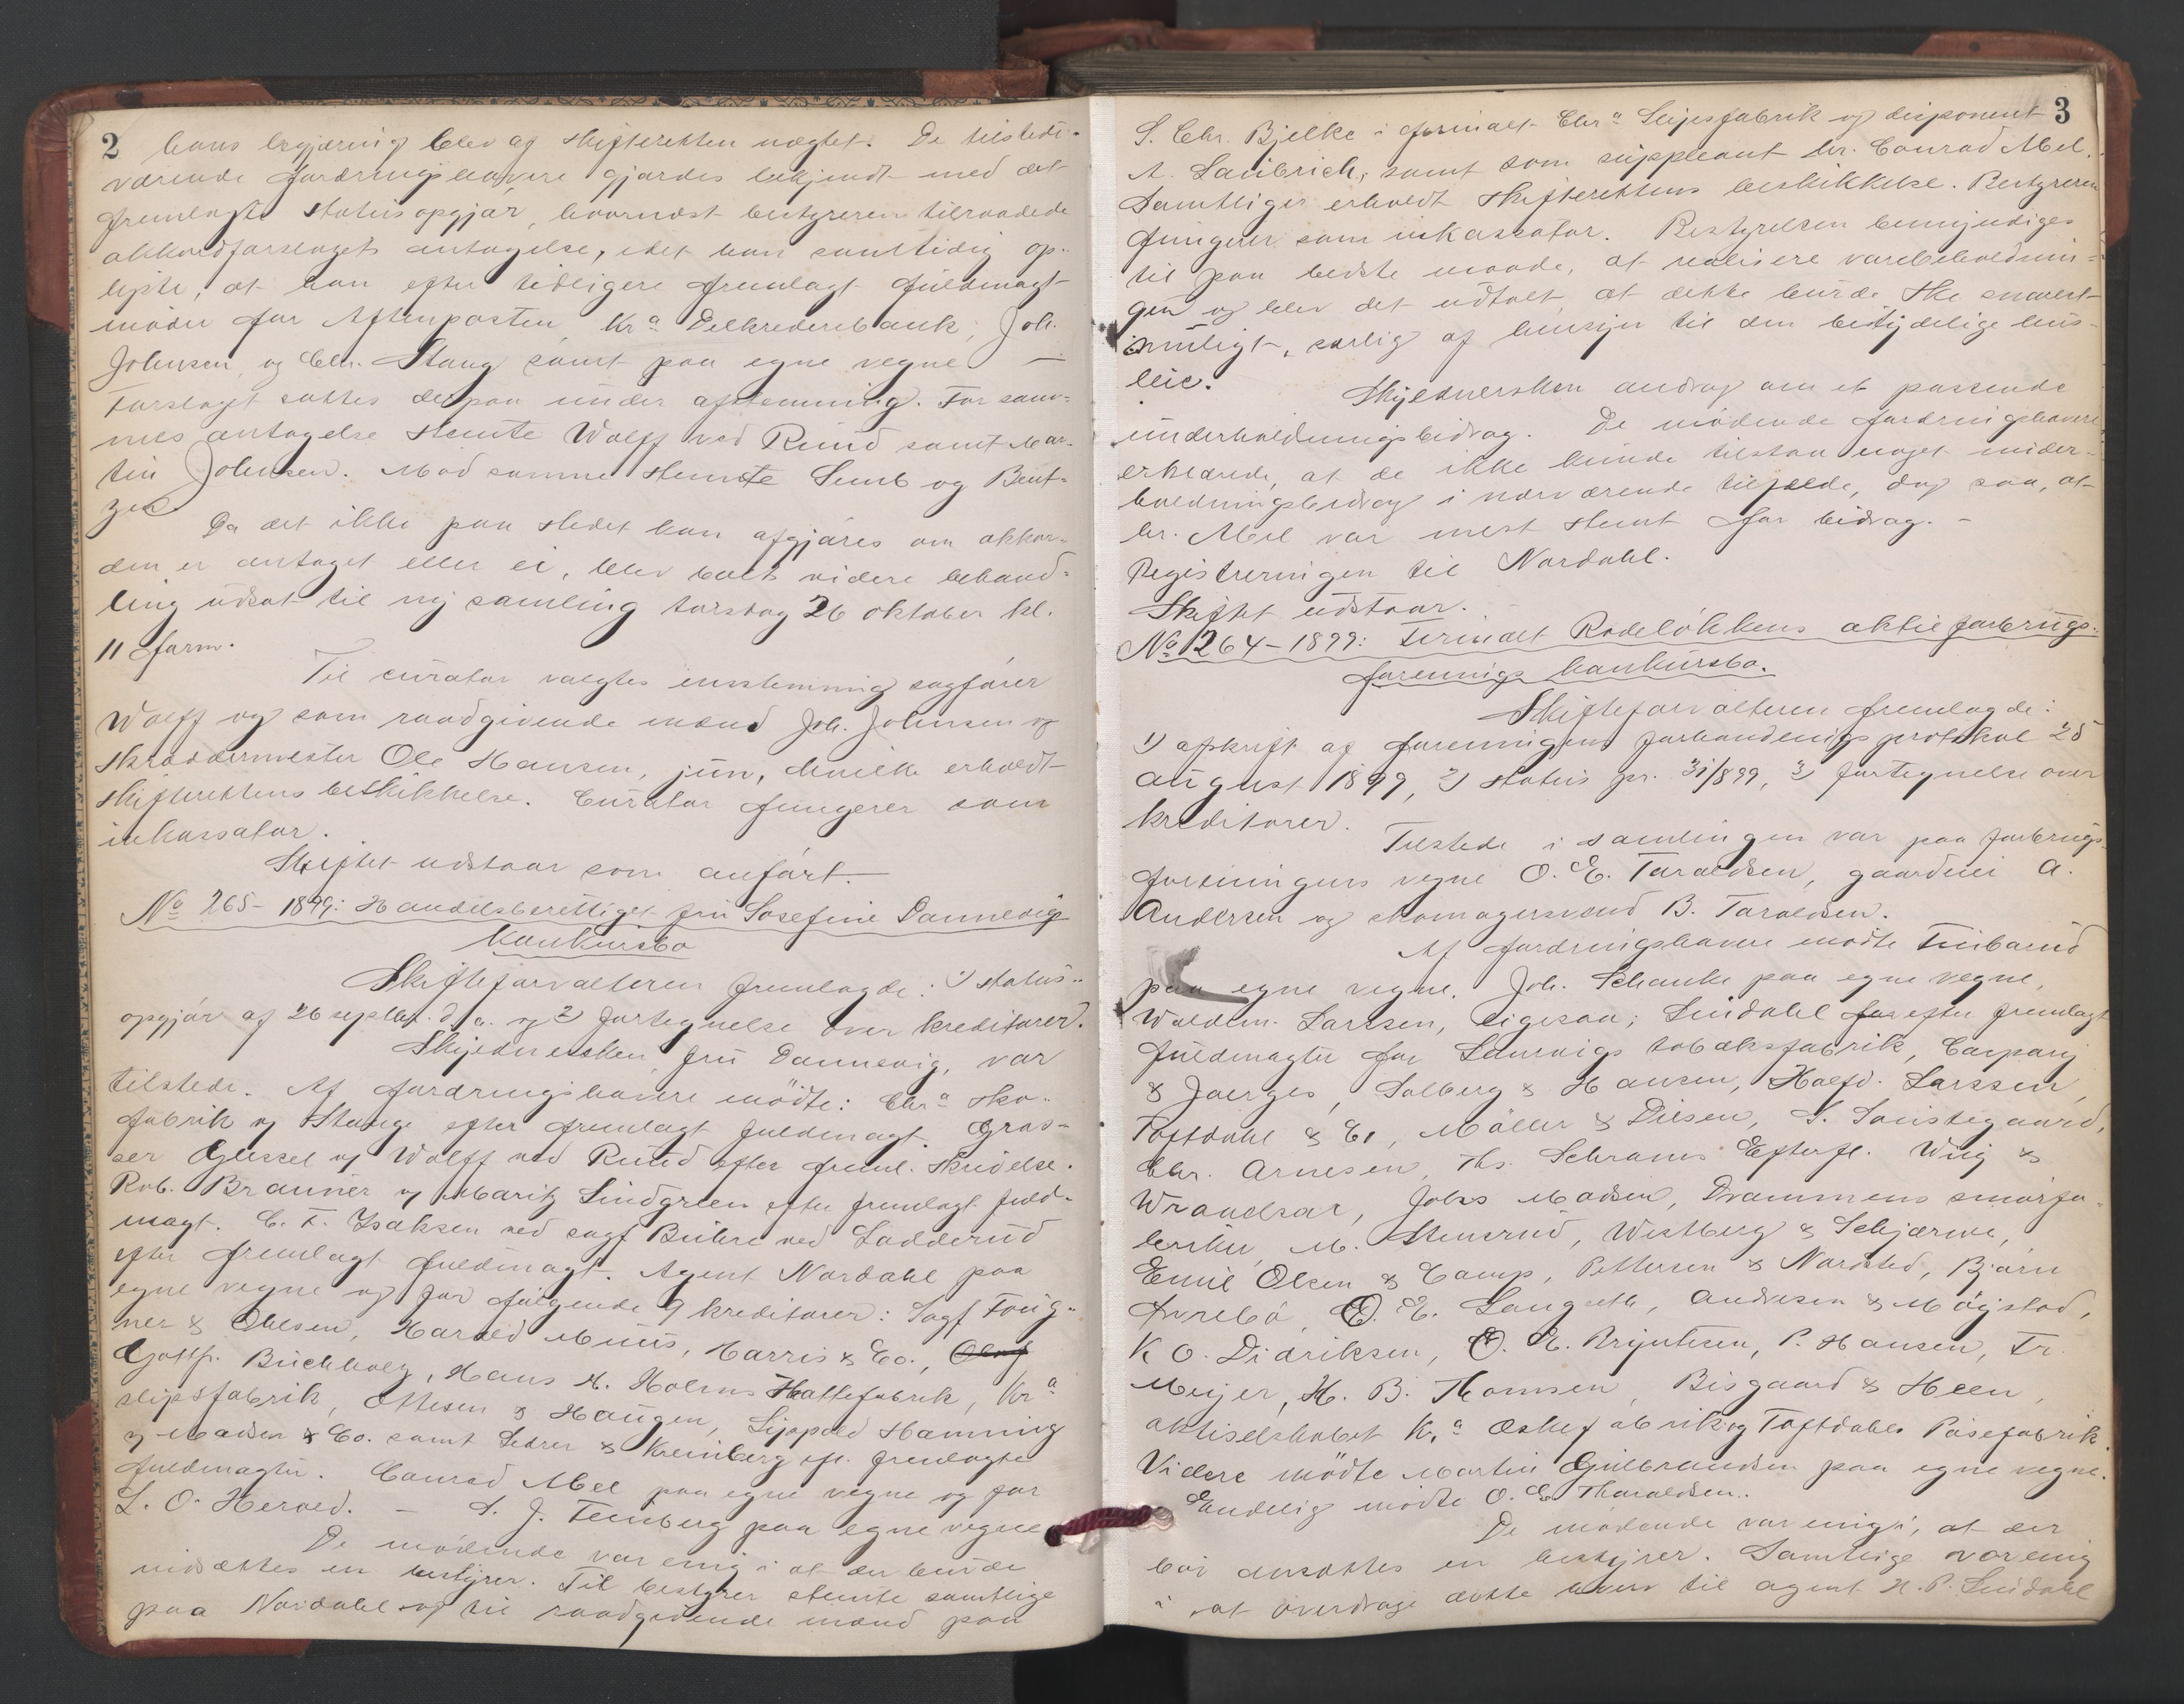 2
hans begjæring blev af skifteretten nægtet. De tilstede-
værende fordringshavere gjordes bekjendt med det
fremlagte statusopgjør, hvornæst bestyreren tilraadede
akkordforslagets antagelse, idet han samtidig op-
lyste, at han efter tidligere fremlagt fuldmagt
møder for Aftenposten, Kra Delkrederebank, Joh.
Johnsen og Chr. Stang samt paa egne vegne —
Forslaget sattes derpaa under afstemning. For sam-
mes antagelse stemte Wolff ved Ruud samt Mar-
tin Johnsen. Mod samme stemte Semb og Bent-
zen.
Da det ikke paa stedet kan afgjøres om akkor-
den er antaget eller ei, blev boets videre behand-
ling udsat til ny samling torsdag 26 oktober kl.
11 form.
Til curator valgtes enstemmig sagfører
Wolff og som raadgivende mænd Joh. Johnsen og
skræddermester Ole Hansen, jun, hvilke erholdt
skifterettens beskikkelse. Curator fungerer som
inkassator.
Skiftet udstaar som anført.
No 265 - 1899: Handelsberettiget fru Josefine Dannevigs
konkursbo
Skifteforvalteren fremlagde: 1) status-
opgjør af 26 septbr. d. a. og 2) fortegnelse over kreditorer.
Skyldnersken, fru Dannevig, var
tilstede. Af fordringshavere mødte: Chra Sko-
fabrik og Stange efter fremlagt fuldmagt. Gros-
ser Gussel og Wolff ved Ruud efter freml. skrivelse.
Rob. Brauner og Moritz Lindgreen efter fremlagt fuld-
magt. C. F. Isaksen ved sagf Buhre ved Ladderud
efter fremlagt fuldmagt. Agent Nordahl paa
egne vegne og for følgende 9 kreditorer: Sagf Foug-
ner & Olesen, Harald Muus, Harris & Co., Olaf
Gottfr. Buchholz, Hans H. Holms Hattefabrik, Kra
slipsfabrik, Ottesen & Haugen, Lippold Hamning
og Madsen & Co. samt Ledrer & Kreinberg eft. fremlagte
fuldmagter. Conrad Mel paa egne vegne og for
L. O. Herved. — S. J. Feinberg paa egne vegne
De mødende var enig i at der burde
indsættes en bestyrer. Til bestyrer stemte samtlige
paa Nordahl og til raadgivende mænd paa
3
S. Chr. Bjelke i firmaet Chra Slipsfabrik og disponent
A. Laubrich, samt som suppleant hr. Conrad Mel.
Samtlige erholdt skifterettens beskikkelse. Bestyreren
fungerer som inkassator. Bestyrelsen bemyndiges
til paa bedste maade, at realisere varebeholdnin-
gen og blev det udtalt, at dette burde ske snarest
muligt, særlig af hensyn til den betydelige hus-
leie.
Skyldnersken androg om et passende
underholdningsbidrag. De mødende fordringshavere
erklærede, at de ikke kunde tilstaa noget under-
holdningsbidrag i nærværende tilfælde, dog saa, at
hr. Mel var mest stemt for bidrag. -
Registreringen til Nordahl.
Skiftet udstaar. -
No 264 - 1899: Firmaet Rodeløkkens aktieforbrugs-
forenings konkursbo.
Skifteforvalteren fremlagde:
1) afskrift af foreningens forhandlingsprotokol 25
august 1899, 2) status pr. 31/8 99, 3) fortegnelse over
kreditorer.
Tilstede i samlingen var paa forbrugs-
foreningens vegne O. E. Taraldsen, gaardeier A.
Andersen og skomagersvend B. Taraldsen.
Af fordringshavere mødte Furbarud
paa egne vegne. Joh. Schanke paa egne vegne,
Waldem. Larssen, ligesaa; Lindahl for efter fremlagt
fuldmagter for Laurvigs tobaksfabrik, Carpanj
& Joerges, Solberg & Hansen, Halfd. Larssen,
Toftdahl & Co, Møller & Diesen, S. Sonstegaard,
Chr. Arnesen, Th. Schrams Efterfl. Wiig &
Wraaelsar, Johs Madsen, Drammens smørfa-
briker, M. Stensrud, Westberg & Schjærve,
Emil Olsen & Comp, Pettersen & Narvsted, Bjørn
Aurebø, O. E. Langseth, Andresen & Møystad,
K O. Didriksen, O. H. Bryntesen, P. Hansen, Fr.
Meyer, H. B. Thomsen, Bisgaard & Heen,
aktieselskabet Kra Æskefabrik og Toftdahls Posefabrik.
Videre mødte Martin Gulbrandsen paa egne vegne.
Endelig mødte O. E. Tharaldsen.
De mødende var enig i, at der
bør ansættes en bestyrer. Samtlige var enig
i at overdrage dette hverv til agent H. P. Lindahl